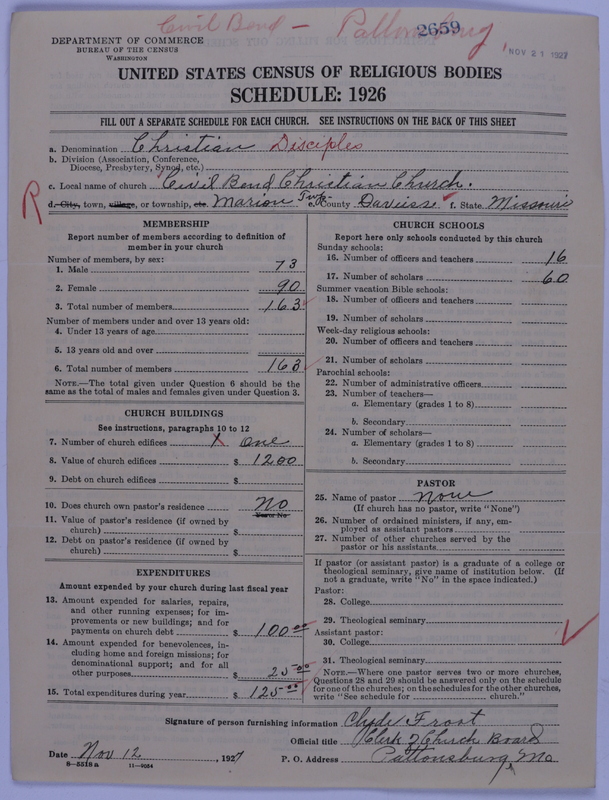 Civil Bend - Pattonsburg
2659
NOV 21 1927
DEPARTMENT OF COMMERCE
BUREAU OF THE CENSUS
WASHINGTON
UNITED STATES CENSUS OF RELIGIOUS BODIES
SCHEDULE: 1926
FILL OUT A SEPARATE SCHEDULE FOR EACH CHURCH. SEE INSTRUCTIONS ON THE BACK OF THIS SHEET
a. Denomination Christian Disciples
b. Division (Association, Conference, Diocese, Presbytery, Synod, etc.)
c. Local name of church Civil Bend Christian Church.
R
d. City, town, village, or township, etc. Marion Twp. e. County Daviess f. State Missouri
MEMBERSHIP
Report number of members according to definition of
member in your church
Number of members, by sex:
1. Male 73
2. Female 90
3. Total number of members 163
Number of members under and over 13 years old:
4. Under 13 years of age
5. 13 years old and over
6. Total number of members 163
NOTE.—The total given under Question 6 should be
same as the total of males and females given under Question 3.
CHURCH BUILDINGS
See instructions, paragraphs 10 to 12
7. Number of church edifices 1 one
8. Value of church edifices $ 1200
9. Debt on church edifices $
10. Does church own pastor's residence No
Yes or No
11. Value of pastor's residence (if owned by
church) $
12. Debt on pastor's residence (if owned by
church) $
EXPENDITURES
Amount expended by your church during last fiscal year
13. Amount expended for salaries, repairs,
and other running expenses; for im-
provements or new buildings; and for
payments on church debt $ 100 00
14. Amount expended for benevolences, in-
cluding home and foreign missions; for
denominational support; and for all
other purposes $ 25 00
15. Total expenditures during year $ 125 00
CHURCH SCHOOLS
Report here only schools conducted by this church
Sunday schools:
16. Number of officers and teachers 16
17. Number of scholars 60
Summer vacation Bible schools:
18. Number of officers and teachers
19. Number of scholars
Week-day religious schools:
20. Number of officers and teachers
21. Number of scholars
Parochial schools:
22. Number of administrative officers
23. Number of teachers—
a. Elementary (grades 1 to 8)
b. Secondary
24. Number of scholars—
a. Elementary (grades 1 to 8)
b. Secondary
PASTOR
25. Name of pastor None
(If church has no pastor, write "None")
26. Number of ordained ministers, if any, em-
ployed as assistant pastors
27. Number of other churches served by the
pastor or his assistants
If pastor (or assistant pastor) is a graduate of a college or
theological seminary, give name of institution below. (If
not a graduate, write "No" in the space indicated.)
Pastor:
28. College
29. Theological seminary
Assistant pastor:
30. College
31. Theological seminary
NOTE.—Where one pastor serves two or more churches,
Questions 28 and 29 should be answered only on the schedule
for one of the churches; on the schedules for the other churches,
write "See schedule for church."
Signature of person furnishing information Clyde Frost
Official title Clerk of Church Board
Date Nov 12, 1927 P. O. Address Pattonsburg, Mo
8-5518 a 11-9054